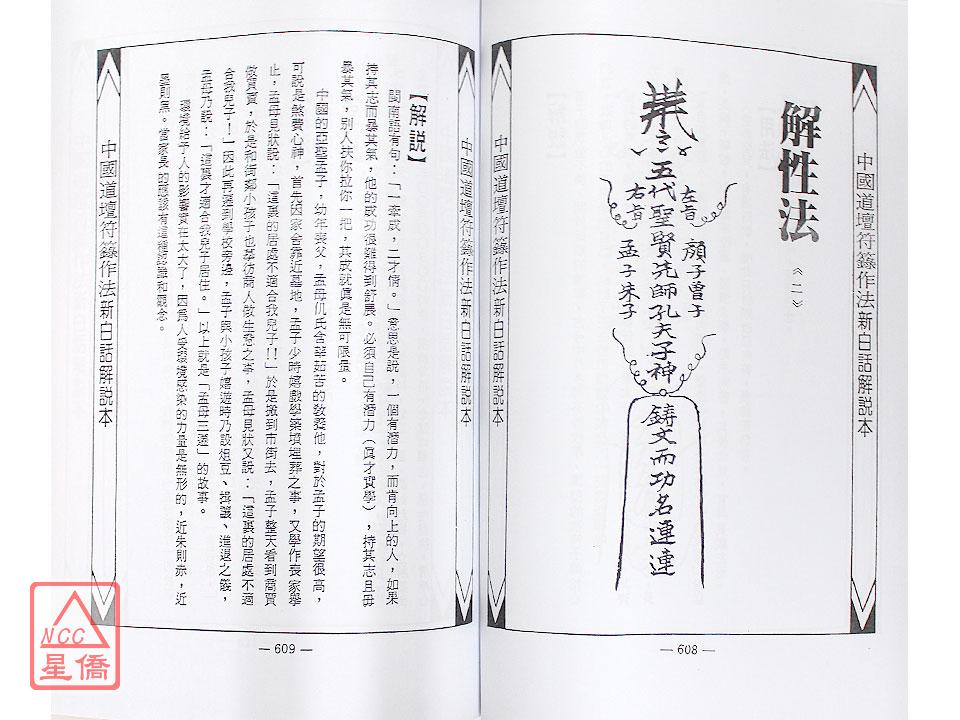 中國道壇符籙作法新白話解說本
解性法
《二》
左旨
顏子曾子
五代聖賢先師孔夫子神
右旨
孟子朱子
鑄文而功名連連
中國道壇符籙作法新白話解說本
— 608 —
中國道壇符籙作法新白話解說本
【解說】
閩南語有句：「一牽成，二才情。」意思是說，一個有潛力，而肯向上的人，如果
持其志而暴其氣，他的成功很難得到舒展。必須自己有潛力（眞才實學），持其志且毋
暴其氣，別人扶你拉你一把，其成就眞是無可限量。
中國的亞聖孟子，幼年喪父，孟母仉氏含辛茹苦的敎養他，對於孟子的期望很高，
可說是煞費心神，首先因家舍靠近墓地，孟子少時嬉戲學築墳埋葬之事，又學作喪家擧
止，孟母見狀說：「這裏的居處不適合我兒子！！」於是搬到市街去，孟子整天看到商賈
做買賣，於是和街鄰小孩子也摹彷商人做生意之事，孟母見狀又說：「這裏的居處不適
合我兒子！」因此再遷到學校旁邊，孟子與小孩子嬉遊時乃設俎豆、揖讓、進退之儀，
孟母乃說：「這裏才適合我兒子居住。」以上就是「孟母三遷」的故事。
環境給予人的影響實在太大了，因爲人受環境感染的力量是無形的，近朱則赤，近
墨則黑。當家長的應該有這種認識和觀念。
中國道壇符籙作法新白話解說本
— 609 —
NCC
星僑